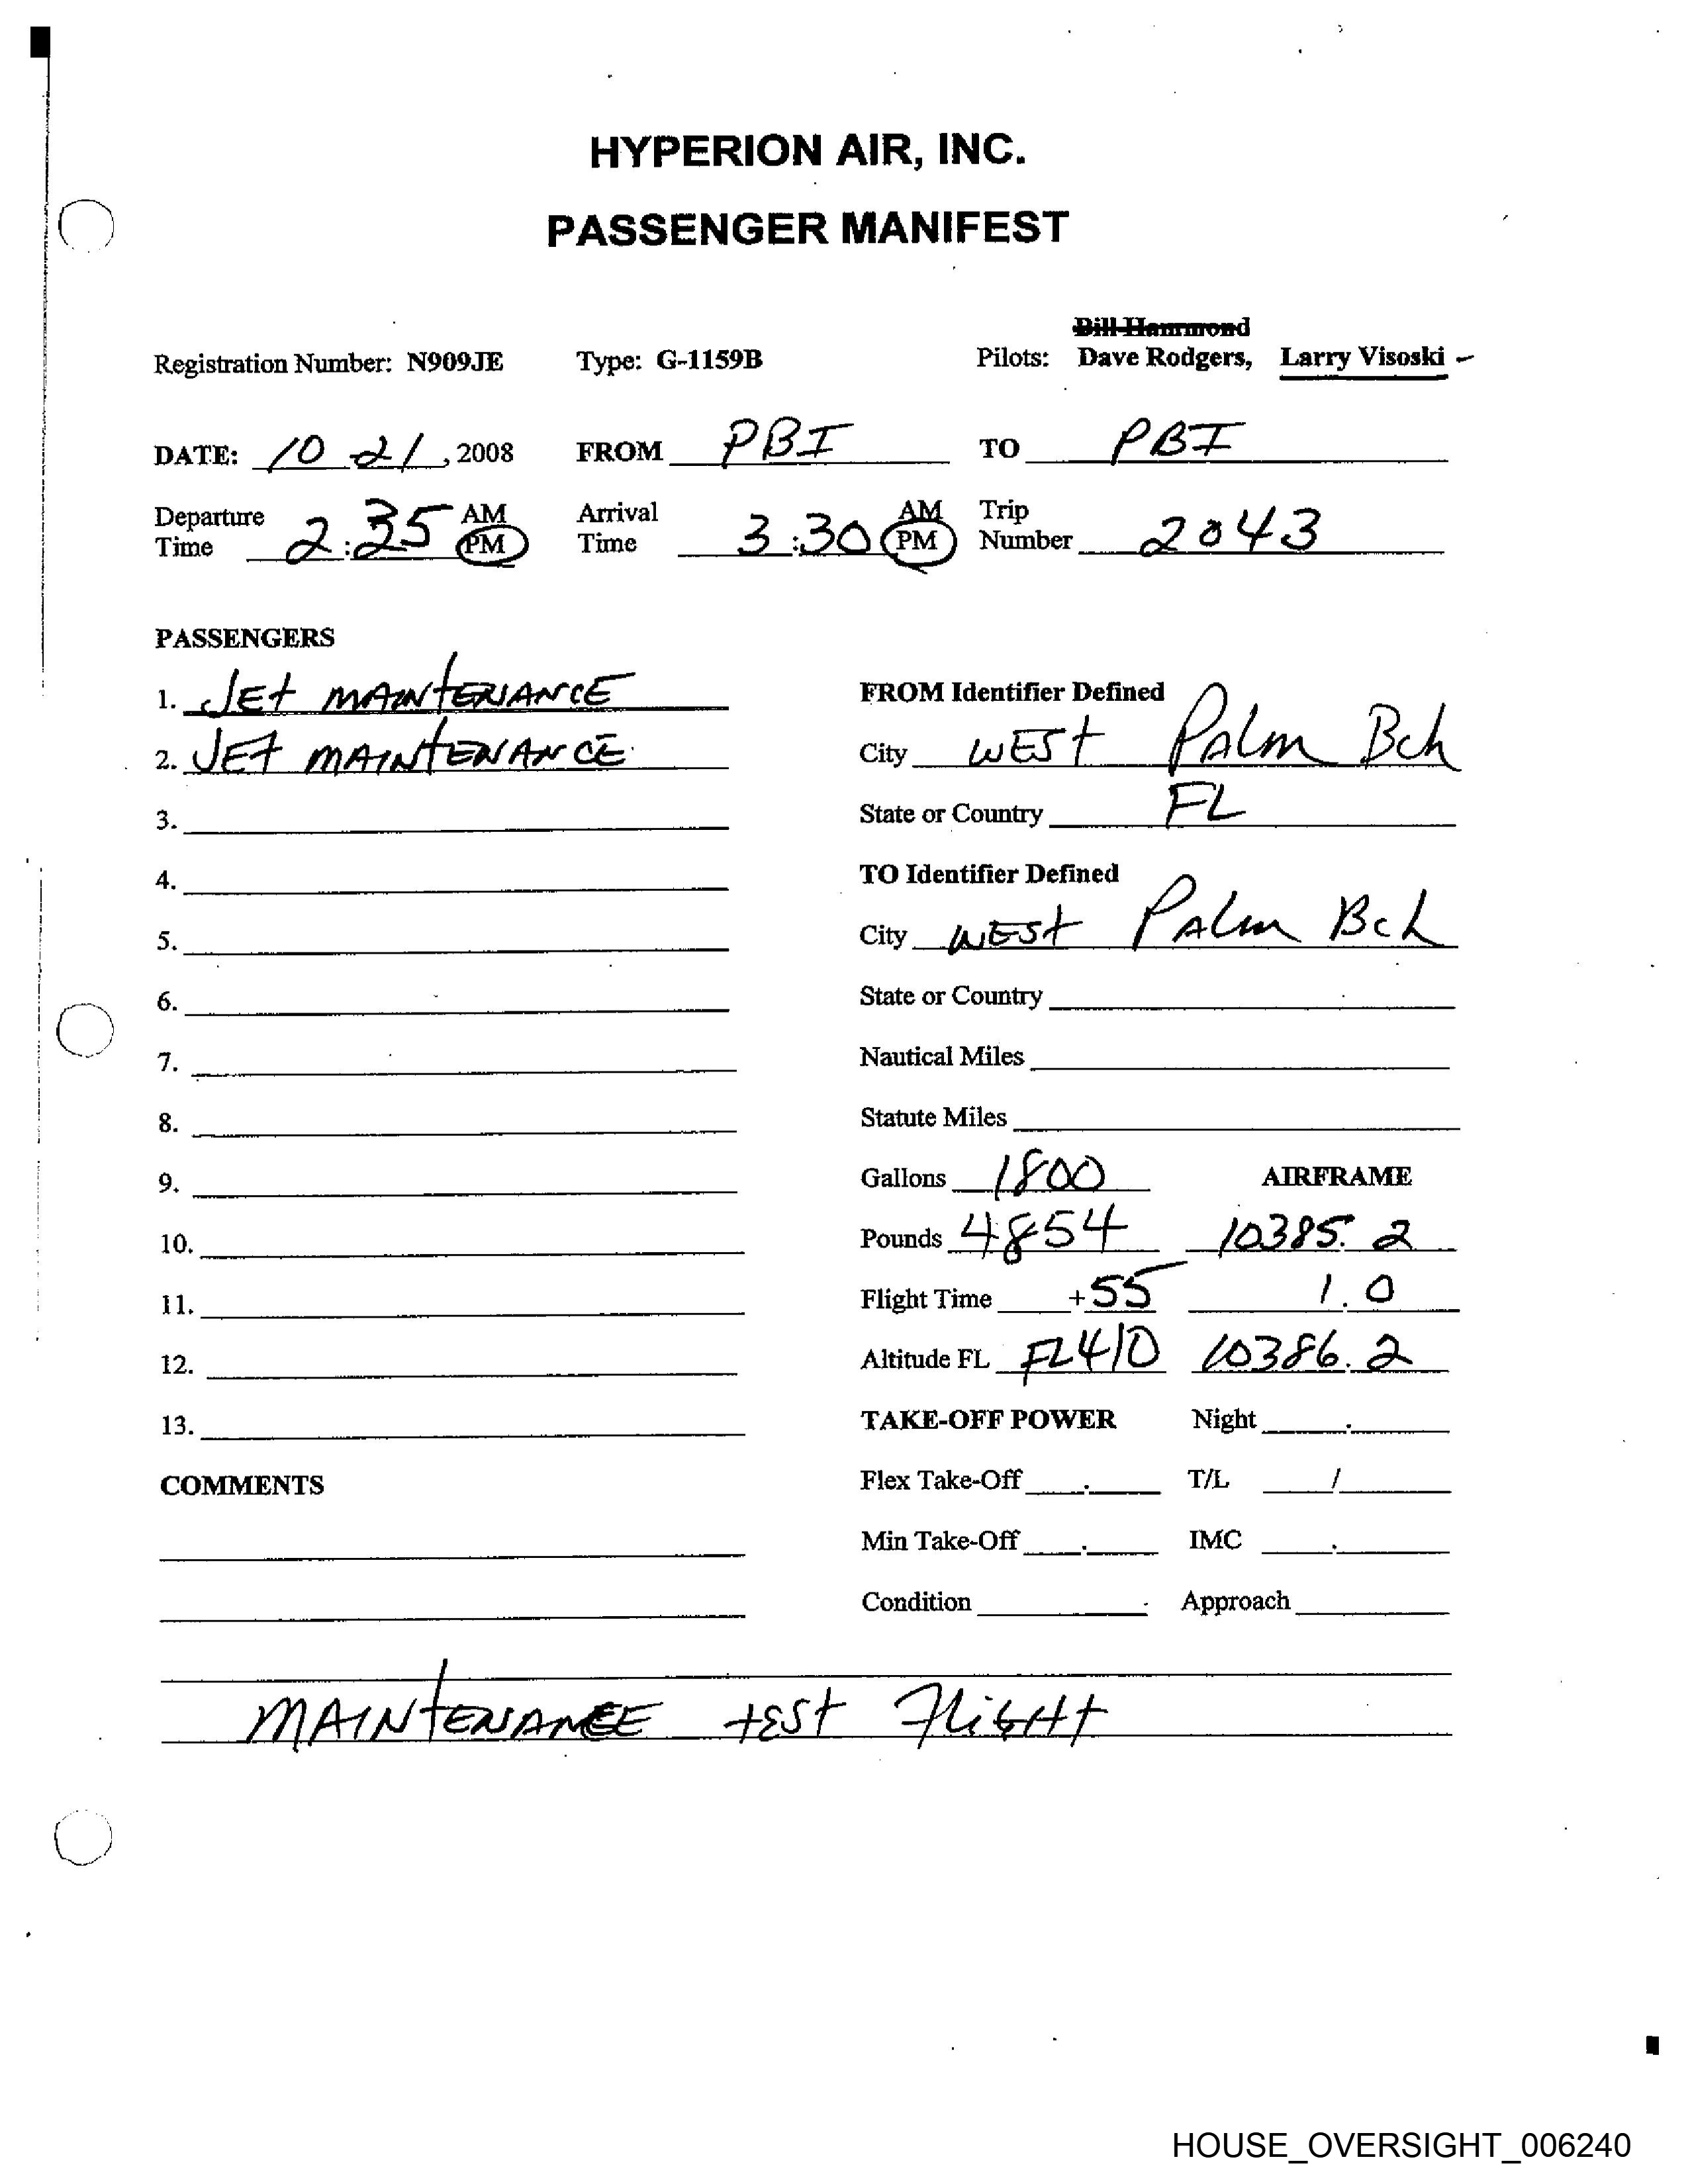 HYPERION AIR, INC.
PASSENGER MANIFEST
Bill Hammond
Registration Number: N909JE Type: G-1159B Pilots: Dave Rodgers, Larry Visoski -
DATE: 10 21, 2008 FROM PBI TO PBI
Departure Time 2:35 AM PM Arrival Time 3:30 AM PM Trip Number 2043
PASSENGERS
1. JEt MAINTENANCE
2. JEt MAINTENANCE
3.
4.
5.
6.
7.
8.
9.
10.
11.
12.
13.
COMMENTS
FROM Identifier Defined
City WESt PAlm Bch
State or Country FL
TO Identifier Defined
City WESt PAlm Bch
State or Country
Nautical Miles
Statute Miles
Gallons 1800 AIRFRAME
Pounds 4854 10385.2
Flight Time +55 1.0
Altitude FL FL410 10386.2
TAKE-OFF POWER Night .
Flex Take-Off . T/L /
Min Take-Off . IMC .
Condition Approach
MAINTENANCE tESt FliGHt
HOUSE_OVERSIGHT_006240